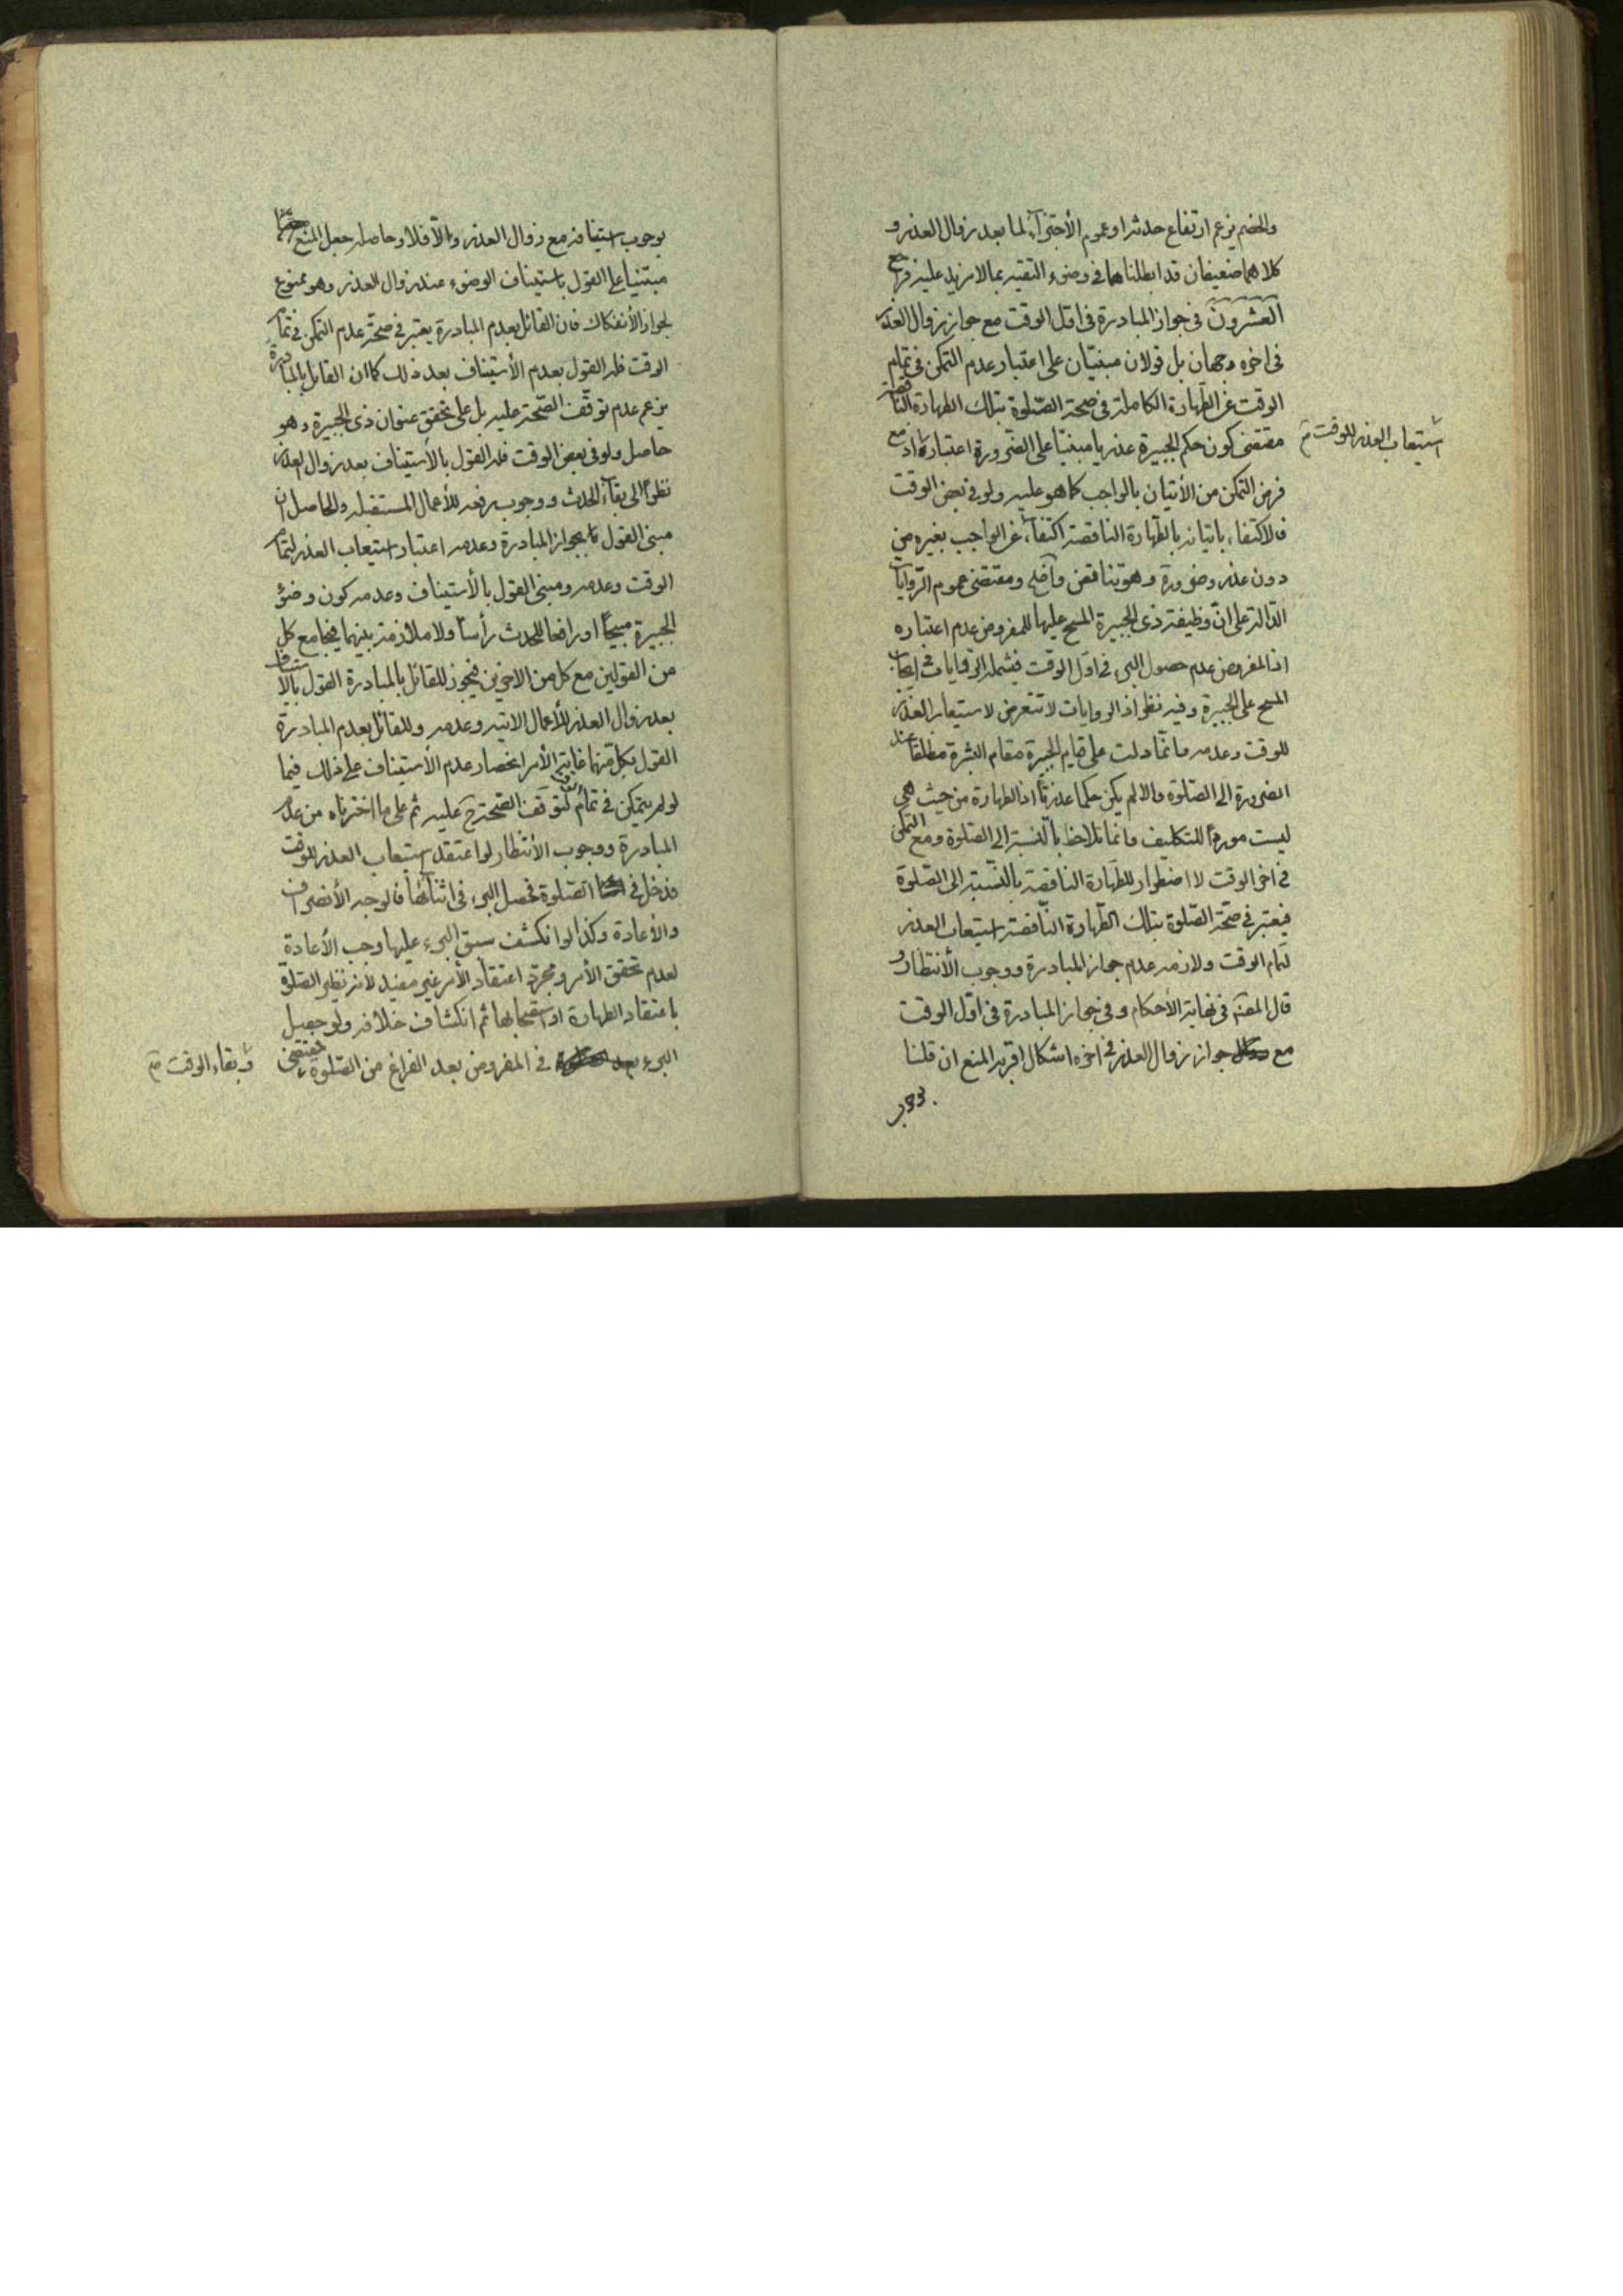 والخصم يزعم ارتفاع حدثه او عموم الأجتزآء لما بعد زوال العذر و
كلاهما ضعيفان قد ابطلناهما في وضوء التقيه بما لا مزيد عليه فراجع
العشرون في جواز المبادرة في اول الوقت مع جواز زوال العذر
في اخره وجهان بل قولان مبنيّان على اعتبار عدم التمكن في تمام
الوقت عن الطهارة الكاملة في صحة الصّلوة بتلك الطهارة الناقصة
مقتضى كون حكم الجبيرة عذريا مبنيّا على الضّرورة اعتباره اذ مع
استيعاب العذر للوقت
فرض التمكن من الأتيان بالواجب كما هو عليه ولو في بعض الوقت
فالاكتفاء باتيانه بالطّهارة الناقصة اكتفآء عن الواجب بغيره من
دون عذر وضرورة وهو تناقض واضح ومقتضى عموم الرّوايات
الدّالة على انّ وظيفة ذى الجبيرة المسح عليها للمفروض عدم اعتباره
اذ المفروض عدم حصول البرء في اوّل الوقت فيشمله الرّوايات في ايجاب
المسح على الجبيرة وفيه نظر اذ الروايات لا تتعرض لاستيعاب العذر
للوقت وعدمه وانّما دلت على قيام الجبيرة مقام البشرة مطلقا عند
الضرورة الى الصّلوة والا لم يكن حكما عذريّا اذ الطهارة من حيث هي
ليست موردا للتكليف وانما تلاحظ بالنّسبة الى الصّلوة ومع التمكن
في اخر الوقت لا اضطرار للطّهارة الناقصة بالنّسبة الى الصّلوة
فيعتبر في صحّة الصّلوة بتلك الطّهارة النّاقصة استيعاب العذر
لتمام الوقت ولازمه عدم جواز المبادرة ووجوب الأنتظار و
قال المصنف في نهاية الأحكام وفي جواز المبادرة في اوّل الوقت
مع جواز زوال العذر في اخره اشكال اقربه المنع ان قلنا
بوجوب استينافه مع زوال العذر والّا فلا وحاصله جعل المنع
مبتنيا على القول باستيناف الوضوء عند زوال العذر وهو ممنوع
لجواز الأنفكاك فان القائل بعدم المبادرة يعتبر في صحّته عدم التمكن في تمام
الوقت فله القول بعدم الأستيناف بعد ذلك كما ان القائل بالمبادرة
يزعم عدم توقّف الصّحة عليه بل على تحقق عنوان ذى الجبيرة وهو
حاصل ولو في بعض الوقت فله القول بالأستيناف بعد زوال العذر
نظرا الى بقآء الحدث ووجوب رفعه للأعمال المستقبله والحاصل ان
مبنى القول بجواز المبادرة وعدمه اعتبار استيعاب العذر لتمام
الوقت وعدمه ومبنى القول بالأستيناف وعدمه كون وضوء
الجبيرة مبيحا او رافعا للحدث رأسا ولا ملازمة بينهما فيجامع كل
من القولين مع كل من الاخرين فيجوز للقائل بالمبادرة القول بالأستيناف
بعد زوال العذر للأعمال الاتيه وعدمه وللقائل بعدم المبادرة
القول بكل منهما غاية الأمر انحصار عدم الأستيناف على ذلك فيما
لو لم يتمكن في تمام الوقت لتوقف الصّحة ح عليه ثم على ما اخترناه من عدم
المبادرة ووجوب الأنتظار لو اعتقد استيعاب العذر للوقت
فدخل في الصّلوة فحصل البرء في اثنآئها فالوجه الأنصراف
والأعادة وكذا لو انكشف سبق البرء عليها وجب الأعادة
لعدم تحقق الأمر ومجرّد اعتقاد الأمر غير مفيد لانه نظير الصّلوة
باعتقاد الطهارة او استصحابها ثم انكشاف خلافه ولو حصل
البرء في المفروض بعد الفراغ من الصّلوة فمقتضى
وبقاء الوقت